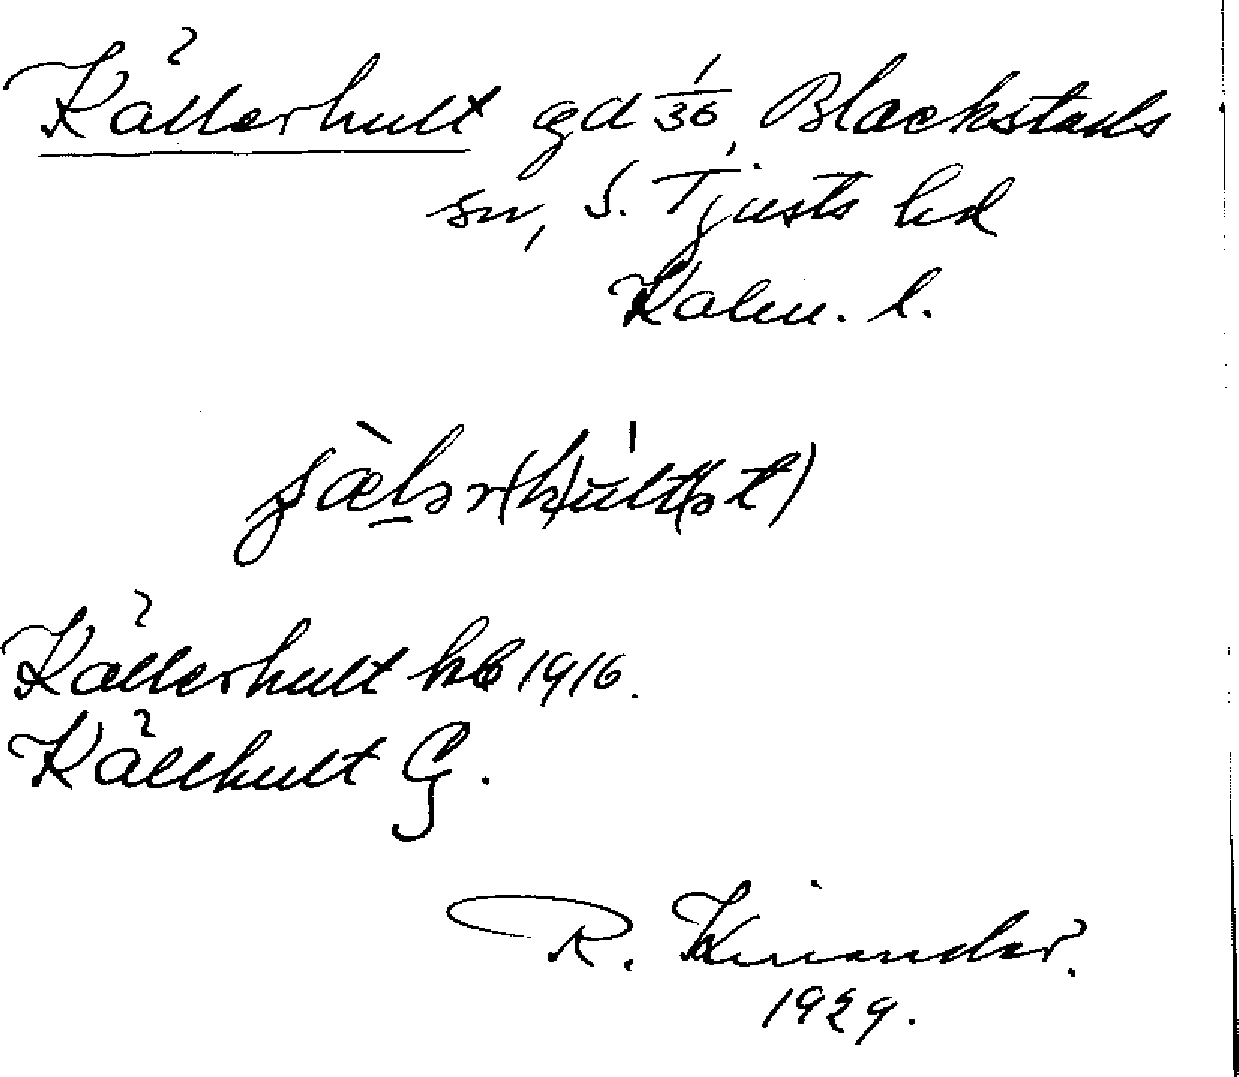 Källerhult gd 1/36, Blackstads
sn, S. Tjusts hd
Kalm. l.
Källerhult kb 1916.
Källhult G.
R. Kinander.
1929.